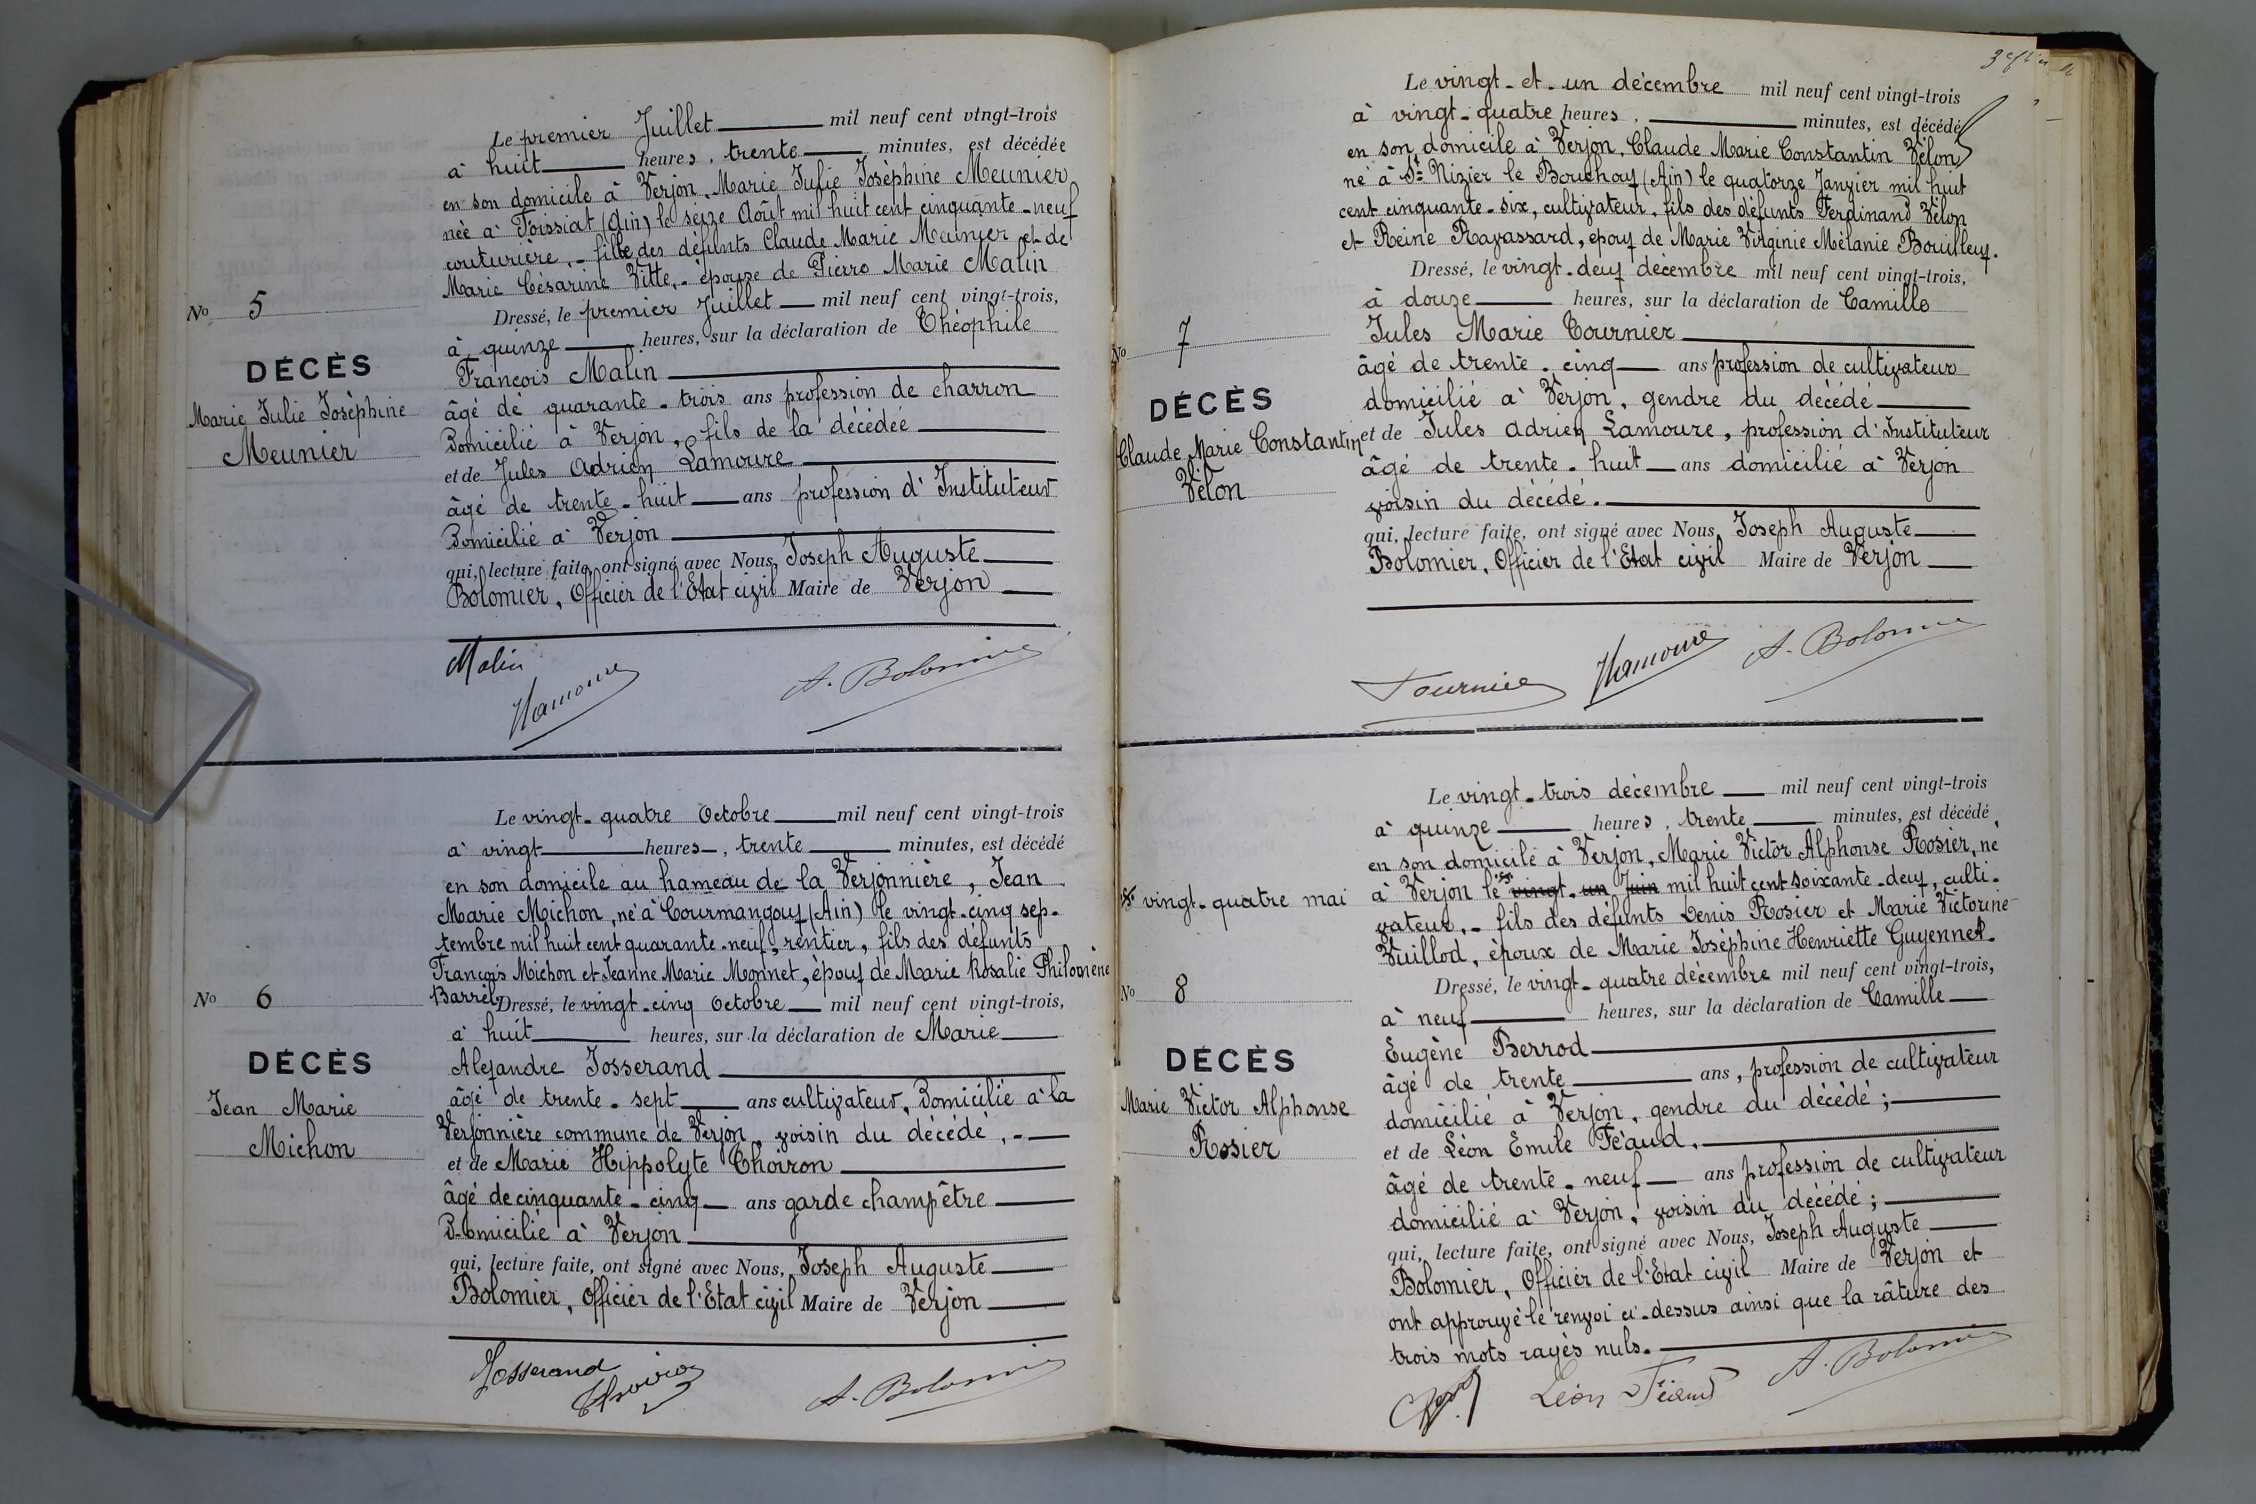 Le premier Juillet mil neuf cent vingt-trois
à huit heures, trente minutes, est décédée
en son domicile à Verjon, Marie Julie Joséphine Meunier
née à Foissiat (Ain) le seize Août mil huit cent cinquante-neuf
couturière, - fille des défunts Claude Marie Meunier et de
Marie Césarine Vitte, - épouse de Pierre Marie Malin
Dressé, le premier Juillet mil neuf cent vingt-trois,
à quinze heures, sur la déclaration de Théophile
François Malin
âgé de quarante-trois ans profession de charron
Domicilié à Verjon, fils de la décédée
et de Jules Adrien Lamoure
âgé de trente-huit ans profession d'Instituteur
Domicilié à Verjon
qui, lecture faite, ont signé avec Nous, Joseph Auguste
Bolomier, Officier de l'Etat civil Maire de Verjon
No 5
DÉCÈS
Marie Julie Joséphine
Meunier
Malin
Lamoure
A. Bolomier
Le vingt-quatre Octobre mil neuf cent vingt-trois
à vingt heures, trente minutes, est décédé
en son domicile au hameau de la Verjonnière, Jean
Marie Michon, né à Courmangoux (Ain) le vingt-cinq sep-
tembre mil huit cent quarante-neuf, rentier, fils des défunts
François Michon et Jeanne Marie Monnet, époux de Marie Rosalie Philomène
Barrel, Dressé, le vingt-cinq Octobre mil neuf cent vingt-trois,
à huit heures, sur la déclaration de Marie
Alexandre Josserand
âgé de trente-sept ans cultivateur, Domicilié à la
Verjonnière commune de Verjon, voisin du décédé, -
et de Marie Hippolyte Choiron
âgé de cinquante-cinq ans garde champêtre
Domicilié à Verjon
qui, lecture faite, ont signé avec Nous, Joseph Auguste
Bolomier, Officier de l'Etat civil Maire de Verjon
No 6
DÉCÈS
Jean Marie
Michon
Josserand
Choiron
A. Bolomier
Le vingt-et-un décembre mil neuf cent vingt-trois
à vingt-quatre heures, minutes, est décédé
en son domicile à Verjon, Claude Marie Constantin Vélon
né à St Nizier le Bouchoux (Ain) le quatorze Janvier mil huit
cent cinquante-six, cultivateur, fils des défunts Ferdinand Vélon
et Reine Ravassard, époux de Marie Virginie Mélanie Bouilleux.
Dressé, le vingt-deux décembre mil neuf cent vingt-trois,
à douze heures, sur la déclaration de Camille
Jules Marie Tournier
âgé de trente-cinq ans profession de cultivateur
domicilié à Verjon, gendre du décédé
et de Jules Adrien Lamoure, profession d'Instituteur
âgé de trente-huit ans domicilié à Verjon
voisin du décédé.
qui, lecture faite, ont signé avec Nous, Joseph Auguste
Bolomier, Officier de l'Etat civil Maire de Verjon
No 7
DÉCÈS
Claude Marie Constantin
Vélon
Tournier
Lamoure
A. Bolomier
Le vingt-trois décembre mil neuf cent vingt-trois
à quinze heures, trente minutes, est décédé
en son domicile à Verjon, Marie Victor Alphonse Rosier, né
à Verjon le vingt-un Juin mil huit cent soixante-deux, culti-
vateur, - fils des défunts Denis Rosier et Marie Victorine
Vuillod, époux de Marie Joséphine Henriette Guyennet.
Dressé, le vingt-quatre décembre mil neuf cent vingt-trois,
à neuf heures, sur la déclaration de Camille
Eugène Berrod
âgé de trente ans, profession de cultivateur
domicilié à Verjon, gendre du décédé;
et de Léon Emile Féaud,
âgé de trente-neuf ans profession de cultivateur
domicilié à Verjon, voisin du décédé;
qui, lecture faite, ont signé avec Nous, Joseph Auguste
Bolomier, Officier de l'Etat civil Maire de Verjon et
ont approuvé le renvoi ci-dessus ainsi que la râture des
trois mots rayés nuls.
vingt-quatre mai
No 8
DÉCÈS
Marie Victor Alphonse
Rosier
Léon Féaud
A. Bolomier